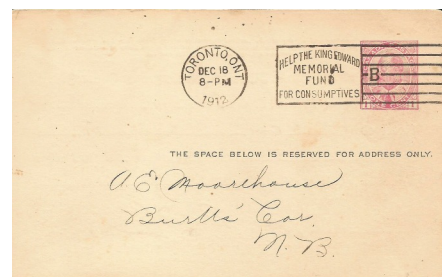 TORONTO, ONT
DEC 18
8-PM
1912
HELP THE KING EDWARD
MEMORIAL
FUND
FOR CONSUMPTIVES
B
THE SPACE BELOW IS RESERVED FOR ADDRESS ONLY.
A E Moorehouse
Burtts' Cor.
N.B.